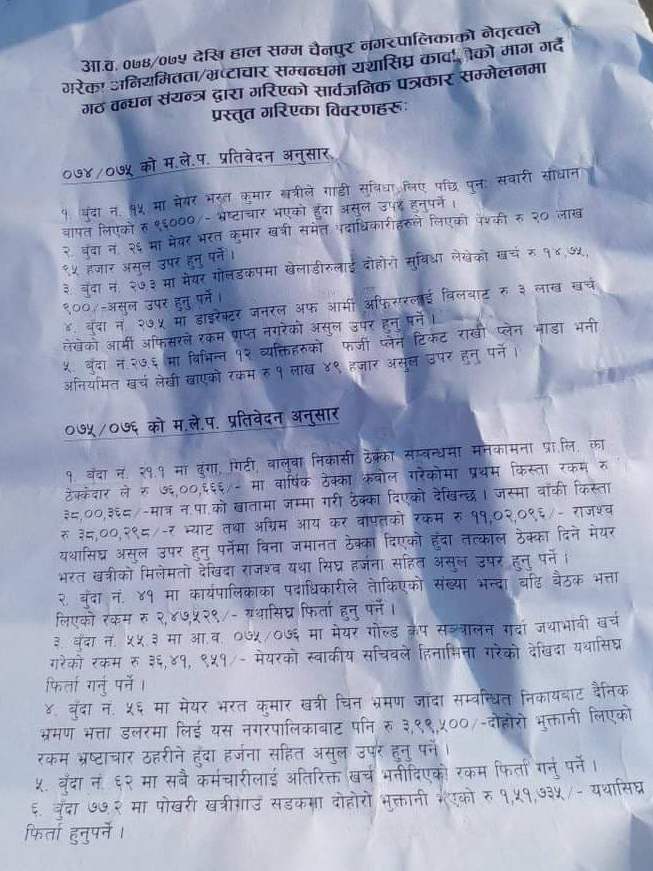 आ.व. ०७४/०७५ देखि हाल सम्म चैनपुर नगरपालिकाको नेतृत्वले
गरेका अनियमितता/भ्रष्टाचार सम्बन्धमा यथासिघ्र माग गर्दै
गठ वन्धन संयन्त्र द्वारा गरिएको सार्वजनिक पत्रकार सम्मेलनमा
प्रस्तुत गरिएका विवरणहरू:
०७४/०७५ को म.ले.प. प्रतिवेदन अनुसार
१. बुंदा नं. १५ मा मेयर भरत कुमार खत्रीले गाडी सुविधा लिए पछि पुन: सवारी सौधान
वापत लिएको रु ९६०००/- भ्रष्टाचार भएको हुंदा असुल उपर हुनुपर्ने ।
२. बुंदा नं. २६ मा मेयर भरत कुमार खत्री समेत पदाधिकारीहरुले लिएको पेश्की रु २० लाख
९५ हजार असुल उपर हुनु पर्ने ।
३. बुंदा नं. २७.३ मा मेयर गोलडकपमा खेलाडीरुलाई दोहोरो सुविधा लेखेको खर्च रु १४,७५,
९००/-असुल उपर हुनु पर्ने ।
४. बुंदा नं. २७.५ मा डाइरेक्टर जनरल अफ आर्मी अफिसरलाई विलबाट रु ३ लाख खर्च
लेखेको आर्मी अफिसरले रकम प्राप्त नगरेको असुल उपर हुनु पर्ने ।
५. बुंदा नं.२७.६ मा विभिन्न १२ व्यक्तिहरुको फर्जी प्लेन टिकेट राखी प्लेन भाडा भनी
अनियमित खर्च लेखी खाएको रकम रु १ लाख ४९ हजार असुल उपर हुनु पर्ने ।
०७५/०७६ को म.ले.प. प्रतिवेदन अनुसार
१. बुंदा नं. २१.१ मा ढुंगा, गिटी, वालुवा निकासी ठेक्का सम्वन्धमा मनकामना प्रा.लि. का
ठेक्केदार ले रु ७६,००,६६६/- मा वार्षिक ठेक्का कवोल गरेकोमा प्रथम किस्ता रकम रु
३८,००,३६८/-मात्र न.पा.को खातामा जम्मा गरी ठेक्का दिएको देखिन्छ । जस्मा वाँकी किस्ता
रु ३८,००,२९८/-र भ्याट तथा अग्रिम आय कर वापतको रकम रु ११,०२,०९६/- राजश्व
यथासिघ्र असुल उपर हुनु पर्नेमा विना जमानत ठेक्का दिएको हुंदा तत्काल ठेक्का दिने मेयर
भरत खत्रीको मिलेमतो देखिदा राजश्व यथा सिघ्र हर्जना सहित असुल उपर हुनु पर्ने ।
२. बुंदा नं. ४१ मा कार्यपालिकाका पदाधिकारीले तोकिएको संख्या भन्दा बढि बैठक भत्ता
लिएको रकम रु २,४७,५२९/- यथासिघ्र फिर्ता हुनु पर्ने ।
३. बुंदा नं. ५५.३ मा आ.व. ०७५/०७६ मा मेयर गोल्ड कप सञ्चालन गर्दा जथाभावी खर्च
गरेको रकम रु ३६,४१,९५१/- मेयरको स्वाकीय सचिवले हिनामिना गरेको देखिदा यथासिघ्र
फिर्ता गर्नु पर्ने ।
४. बुंदा नं. ५६ मा मेयर भरत कुमार खत्री चिन भ्रमण जाँदा सम्वन्धित निकायबाट दैनिक
भ्रमण भत्ता डलरमा लिई यस नगरपालिकाबाट पनि रु ३,९९,५००/-दोहोरो भुक्तानी लिएको
रकम भ्रष्टाचार ठहरीने हुंदा हर्जना सहित असुल उपर हुनु पर्ने ।
५. बुंदा नं. ६२ मा सबै कर्मचारीलाई अतिरिक्त खर्च भनीदिएको रकम फिर्ता गर्नु पर्ने ।
६. बुंदा ७७.२ मा पोखरी खत्रीगाउँ सडकमा दोहोरो भुक्तानी भएको रु १,५१,७३५/- यथासिघ्र
फिर्ता हुनुपर्ने ।